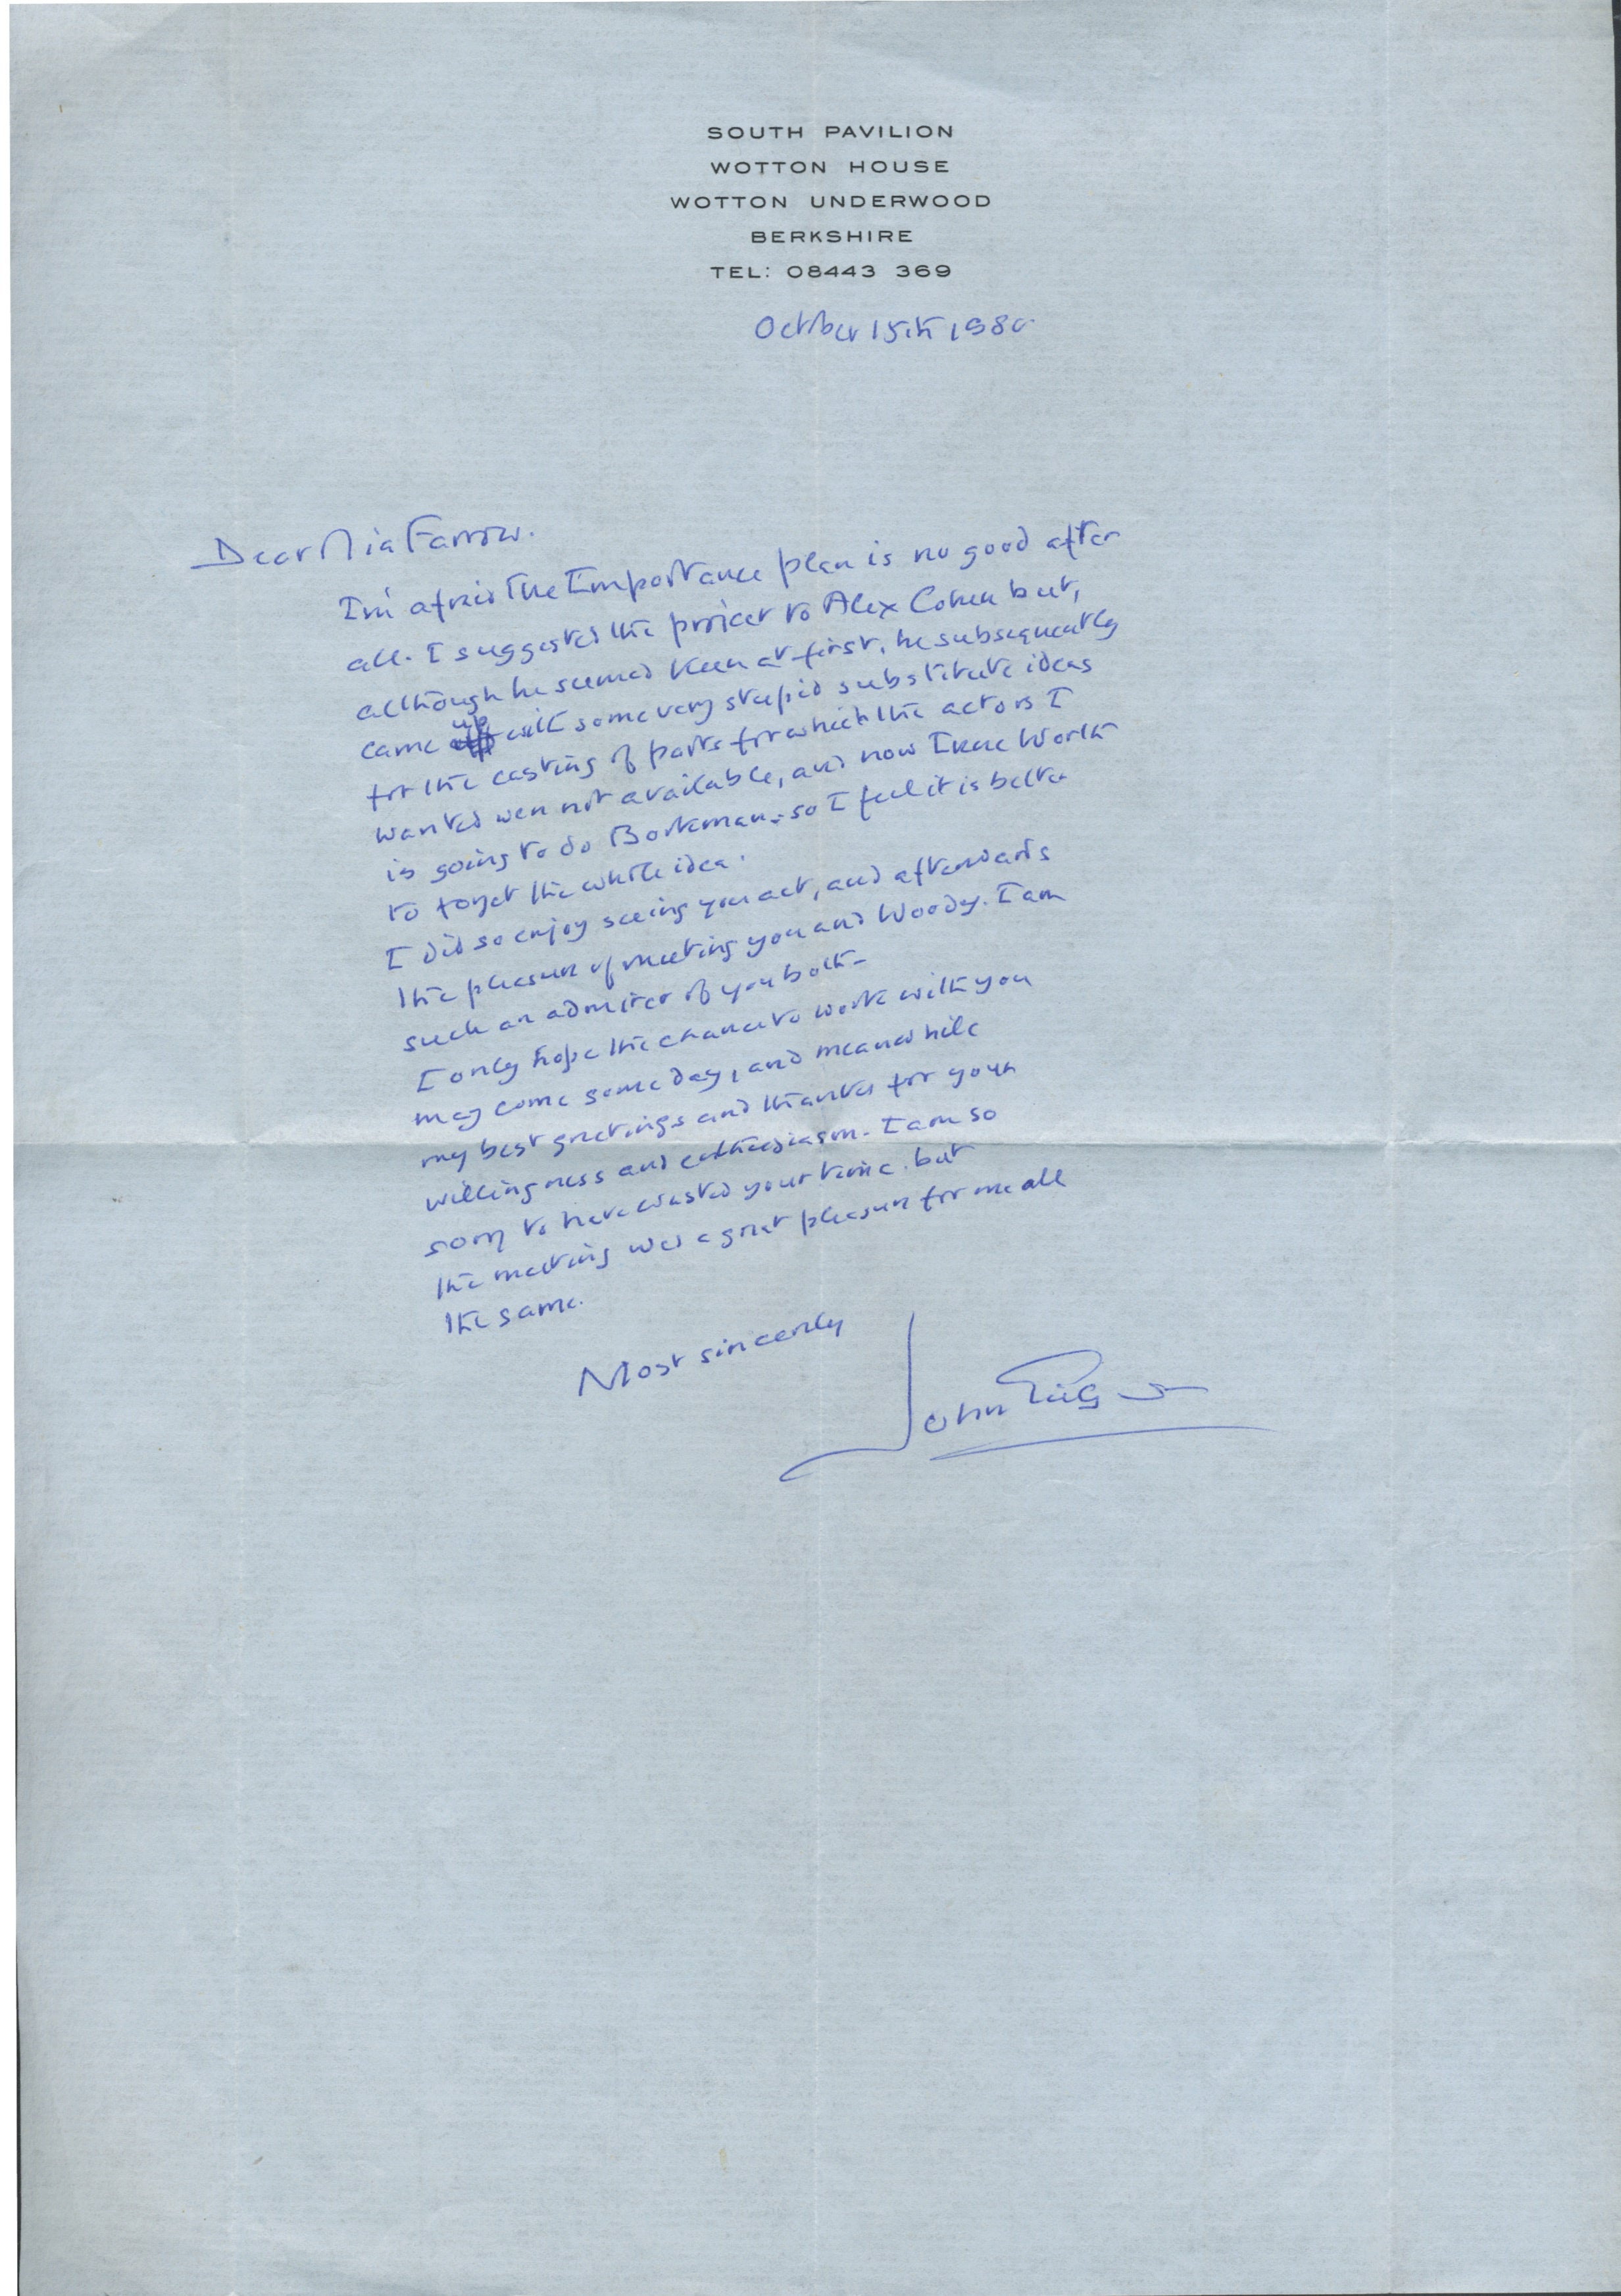 SOUTH PAVILION
WOTTON HOUSE
WOTTON UNDERWOOD
BERKSHIRE
TEL: 08443 369
October 15th 1980
Dear Mia Farrow.
I'm afraid the Importance plan is no good after
all. I suggested the project to Alex Cohen but,
although he seemed keen at first, he subsequently
came up with some very stupid substitute ideas
for the casting of parts for which the actors I
wanted were not available, and now Irene Worth
is going to do Borkman - so I feel it is better
to forget the whole idea.
I did so enjoy seeing you act, and afterwards
the pleasure of meeting you and Woody. I am
such an admirer of you both -
I only hope the chance to work with you
may come some day, and meanwhile
my best greetings and thanks for your
willingness and enthusiasm. I am so
sorry to have wasted your time. but
the meeting was a great pleasure for me all
the same.
Most sincerely
John Gielgud